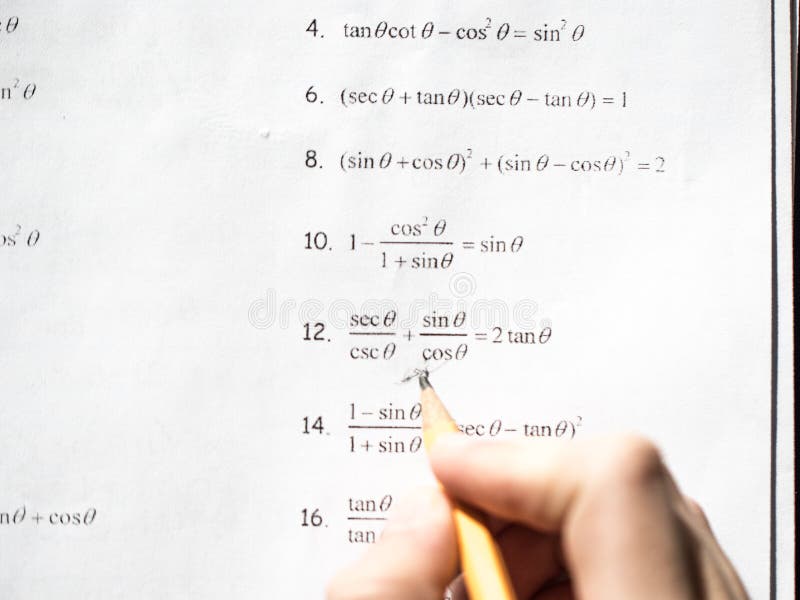 θ
n² θ
os² θ
nθ + cosθ
4. tanθcot θ − cos² θ = sin² θ
6. (sec θ + tanθ)(sec θ − tan θ) = 1
8. (sin θ + cos θ)² + (sin θ − cosθ)² = 2
10. 1 − cos² θ / 1 + sinθ = sin θ
12. sec θ / csc θ + sin θ / cosθ = 2 tan θ
14. 1 − sin θ / 1 + sin θ ec θ − tan θ)²
16. tan θ / tan
dreamstime